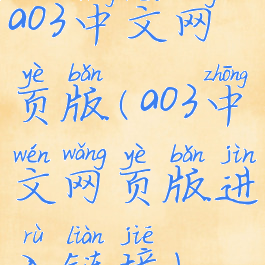 ao3中文网
yè bǎn zhōng
页版(ao3中
wén wǎng yè bǎn jìn
文网页版进
rù liàn jiē